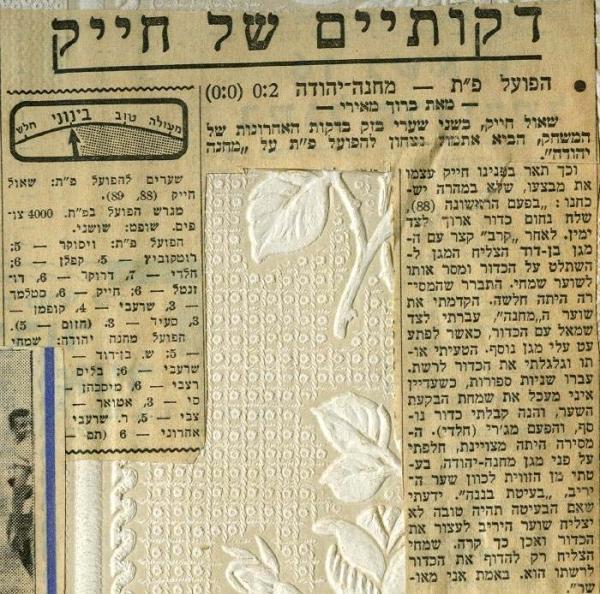 דקותיים של חייק
● הפועל פ״ת — מחנה־יהודה 0:2 (0:0)
— מאת ברוך מאירי —
שאול חייק, בשני שערי בזק בדקות האחרונות של
המשחק, הביא אתמול נצחון להפועל פ״ת על „מחנה
יהודה״.
וכך תאר בפנינו חייק עצמו
את מבצעו, שלא במהרה יש־
כחנו: „בפעם הראשונה (88),
שלח נחום כדור ארוך לצד
ימין. לאחר „קרב״ קצר עם ה־
מגן בן־דוד הצליח המגן ל־
השתלט על הכדור ומסר אותו
לשוער שמחי. התברר שהמסי־
רה היתה חלשה. הקדמתי את
שוער ה„מחנה״, עברתי לצד
שמאל עם הכדור, כאשר לפתע
עט עלי מגן נוסף. הטעיתי או־
תו וגלגלתי את הכדור לרשת.
עברו שניות ספורות, כשעדיין
איני מעכל את שמחת הבקעת
השער, והנה קבלתי כדור נו־
סף, והפעם מג׳רי (חלדי). ה־
מסירה היתה מצויינת, חלפתי
על פני מגן מחנה־יהודה, בע־
טתי מן הזווית לכוון שער ה־
יריב, „בעיטת בננה״. ידעתי
שאם הבעיטה תהיה טובה לא
יצליח שוער היריב לעצור את
הכדור ואכן כך קרה. שמחי
הצליח רק להדוף את הכדור
לרשתו הוא. באמת אני מאו־
שר״.
מעולה טוב בינוני חלש
שערים להפועל פ״ת: שאול
חייק (88, 89).
מגרש הפועל בפ״ת. 4000 צו־
פים. שופט: שושני.
הפועל פ״ת: ויסוקר — 5;
רוטקוביץ — 5, קפלן — 6;
חלדי — 7, דרוקר — 6, רו־
זנטל — 6; חייק — 6, סטלמך
— 3, שרעבי — 4, קופמן —
3, סעיד — 3. (חזום — 5).
הפועל מחנה יהודה: שמחי
— 5; ש. בן־דוד —
שרעבי — 6; בליס
רצבי — 6, מיסכהן —
סי — 3, אטואר —
צבי — 5, ר. שרעבי
אהרוני — 6 (תם —